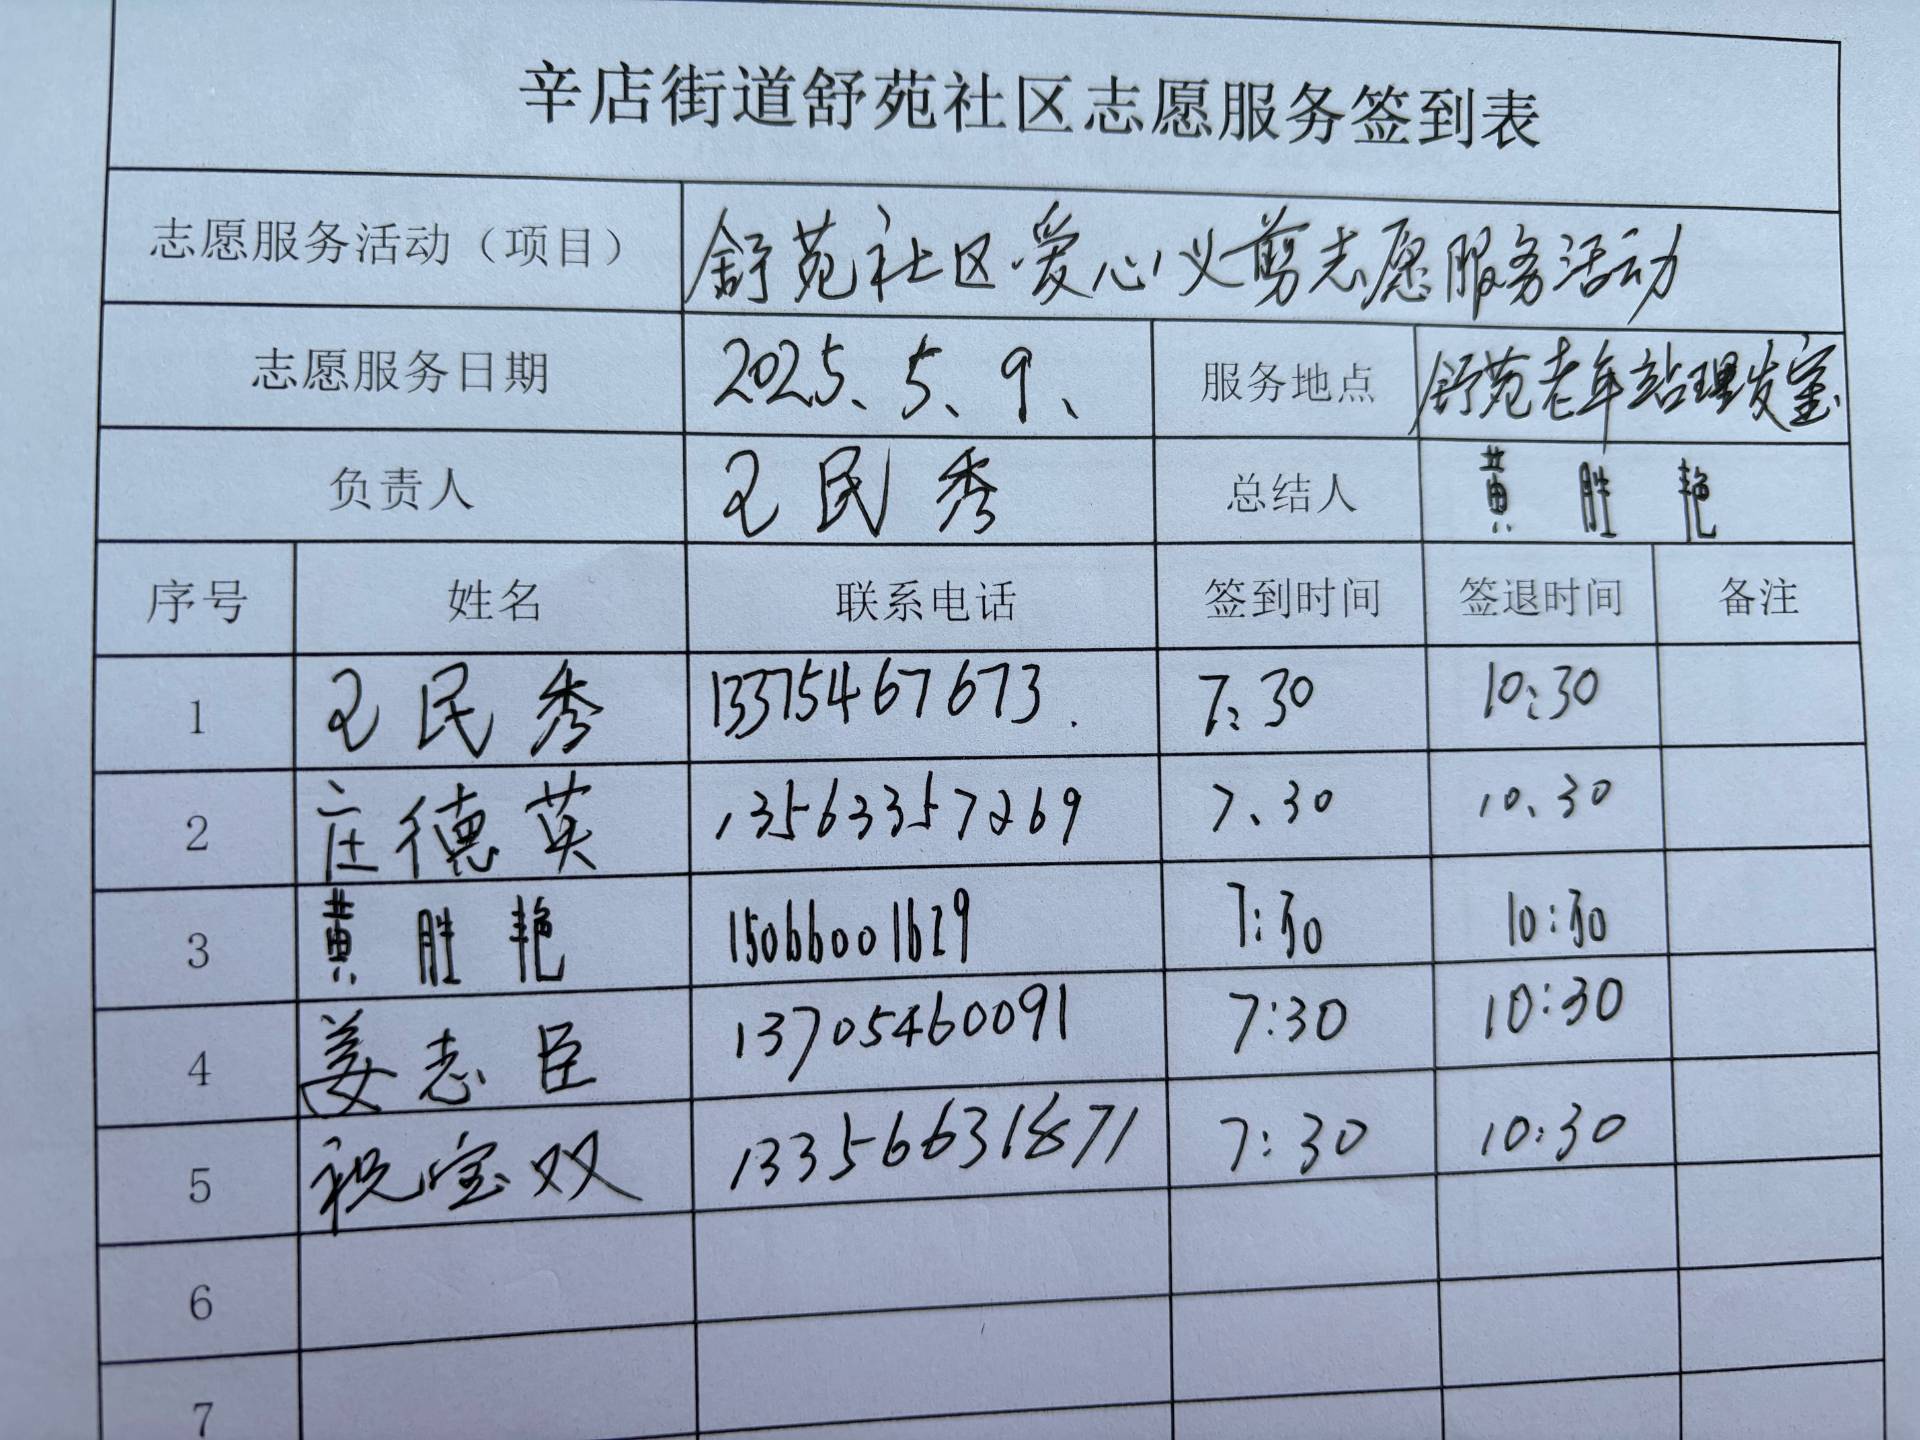 辛店街道舒苑社区志愿服务签到表
志愿服务活动（项目） 舒苑社区爱心义剪志愿服务活动
志愿服务日期 2025、5、9、 服务地点 舒苑老年站理发室
负责人 王民秀 总结人 黄胜艳
序号 姓名 联系电话 签到时间 签退时间 备注
1 王民秀 13375467673. 7:30 10:30
2 庄德英 13563357269 7、30 10、30
3 黄胜艳 15066001629 7:30 10:30
4 姜志臣 13705460091 7:30 10:30
5 祝宝双 7:30 10:30
6
7